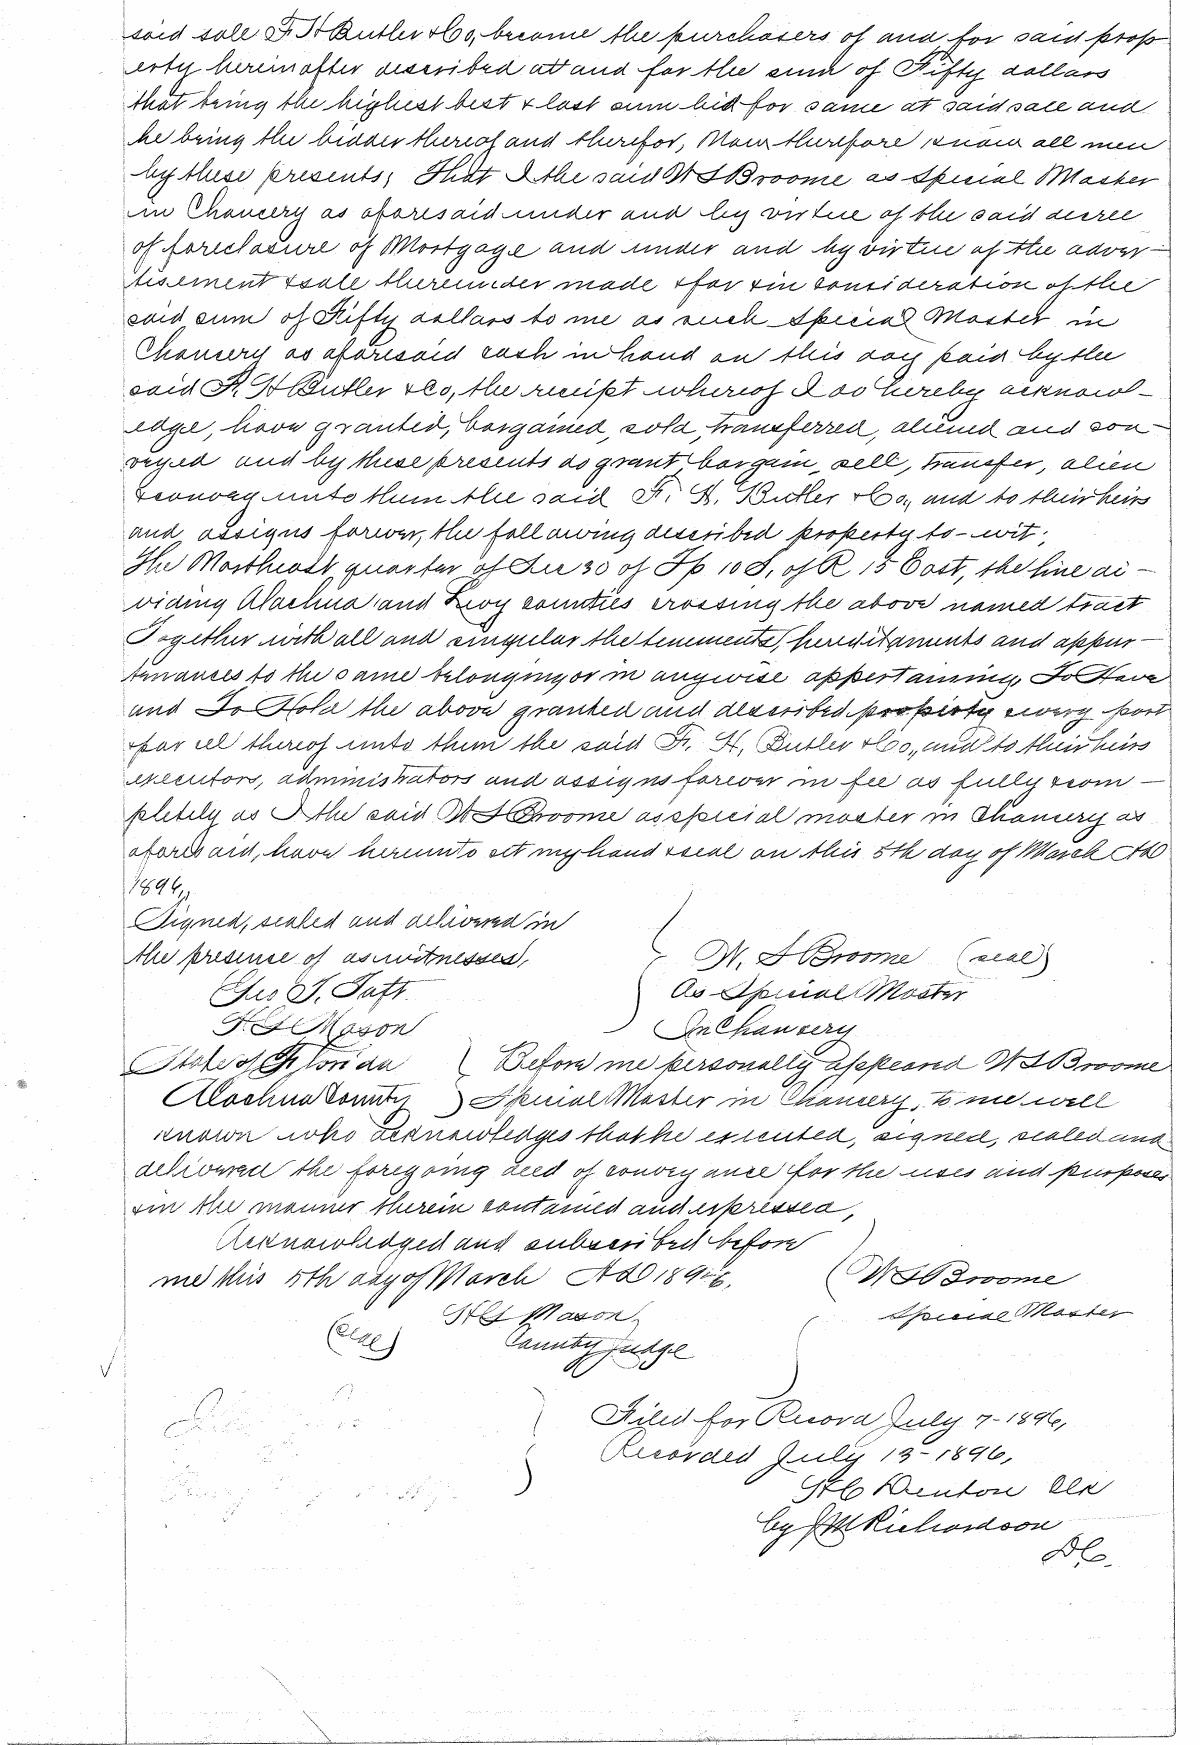 said sale F. H Butler & Co, become the purchasers of and for said prop
erty hereinafter described at and for the sum of Fifty dollars
that being the highest best & last sum bid for same at said sale and
he being the bidder thereof and therefor, Now therefore know all men
by these presents; That I the said W S Broome as Special Master
in Chancery as aforesaid under and by virtue of the said decree
of foreclosure of Mortgage and under and by virtue of the adver-
tisement & sale thereunder made & for & in consideration of the
said sum of Fifty dollars to me as such Special Master in
Chancery as aforesaid cash in hand on this day paid by the
said F. H Butler & Co, the receipt whereof I do hereby acknowl-
edge, have granted, bargained, sold, transferred, aliened and con-
veyed and by these presents do grant, bargain, sell, transfer, alien
& convey unto them the said F. H. Butler & Co., and to their heirs
and assigns forever, the following described property to-wit;
The Northeast quarter of Sec 30 of Tp 10 S, of R 15 East, the line di-
viding Alachua and Levy counties crossing the above named tract
Together with all and singular the tenements, hereditaments and appur-
tenances to the same belonging or in anywise appertaining, To Have
and To Hold the above granted and described property every part
& parcel thereof unto them the said F. H, Butler & Co., and to their heirs
executors, administrators and assigns forever in fee as fully & com-
pletely as I the said W S Broome as special master in Chancery as
aforesaid, have hereunto set my hand & seal on this 5th day of March AD
1896,
Signed, sealed and delivered in
the presence of as witnesses,
W. S Broome (seal)
Gus S. Taft
As Special Master
H G Mason
In Chancery
State of Florida Before me personally appeared W S Broome
Alachua County Special Master in Chancery, to me well
known who acknowledges that he executed, signed, sealed and
delivered the foregoing deed of conveyance for the uses and purposes
& in the manner therein contained and expressed,
Acknowledged and subscribed before
me this 5th day of March AD 1896. W S Broome
H G Mason, Special Master
(seal) County Judge
Filed for Record July 7-1896,
Recorded July 13-1896,
H C Denton Clk
by J M Richardson
DC.